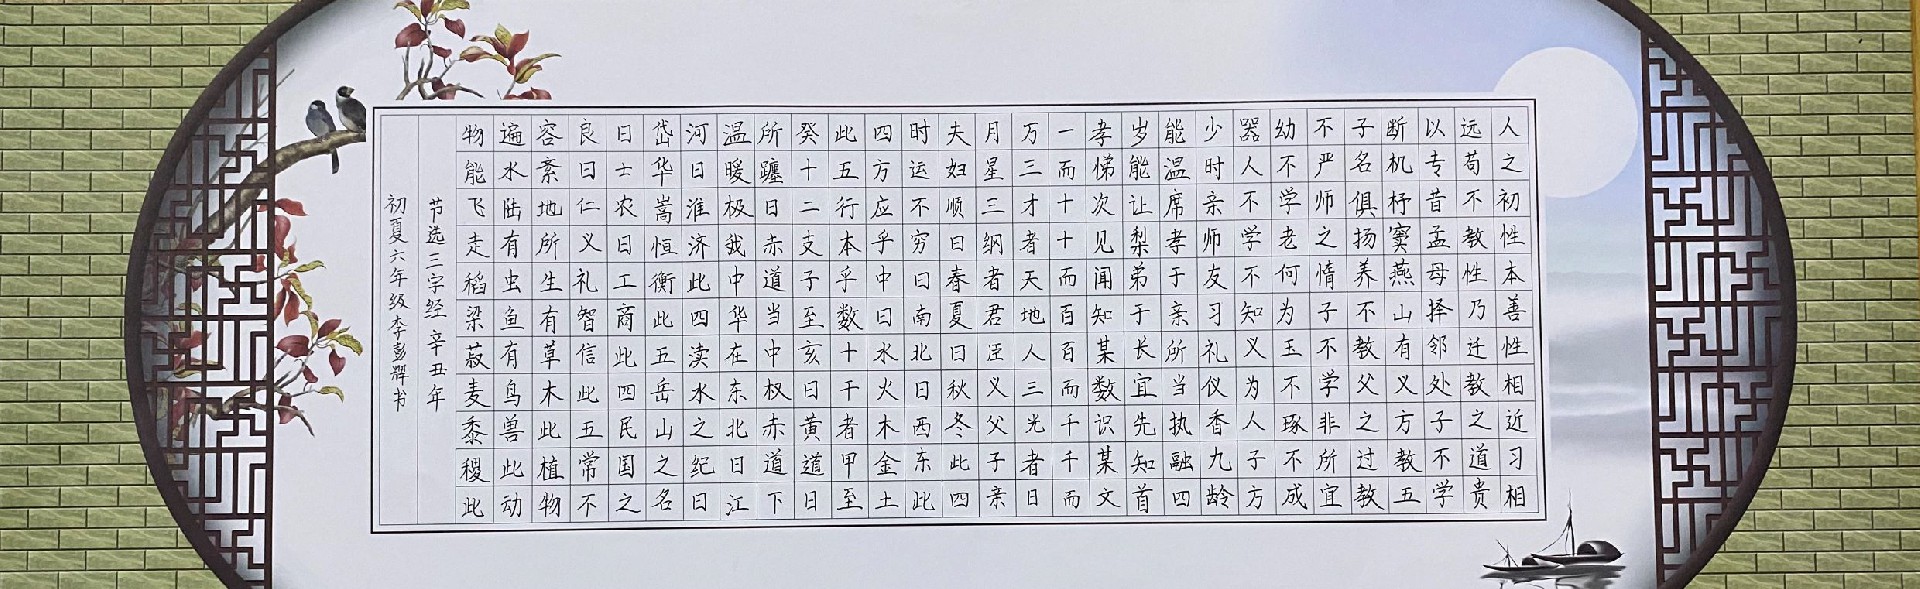 人之初性本善性相近习相
远苟不教性乃迁教之道贵
以专昔孟母择邻处子不学
断机杼窦燕山有义方教五
子名俱扬养不教父之过教
不严师之惰子不学非所宜
幼不学老何为玉不琢不成
器人不学不知义为人子方
少时亲师友习礼仪香九龄
能温席孝于亲所当执融四
岁能让梨弟于长宜先知首
孝悌次见闻知某数识某文
一而十十而百百而千千而
万三才者天地人三光者日
月星三纲者君臣义父子亲
夫妇顺曰春夏曰秋冬此四
时运不穷曰南北曰西东此
四方应乎中曰水火木金土
此五行本乎数十干者甲至
癸十二支子至亥曰黄道日
所躔日赤道当中权赤道下
温暖极我中华在东北曰江
河曰淮济此四渎水之纪曰
岱华嵩恒衡此五岳山之名
曰士农曰工商此四民国之
良曰仁义礼智信此五常不
容紊地所生有草木此植物
遍水陆有虫鱼有鸟兽此动
物能飞走稻梁菽麦黍稷此
节选三字经 辛丑年
初夏六年级李彭辉书